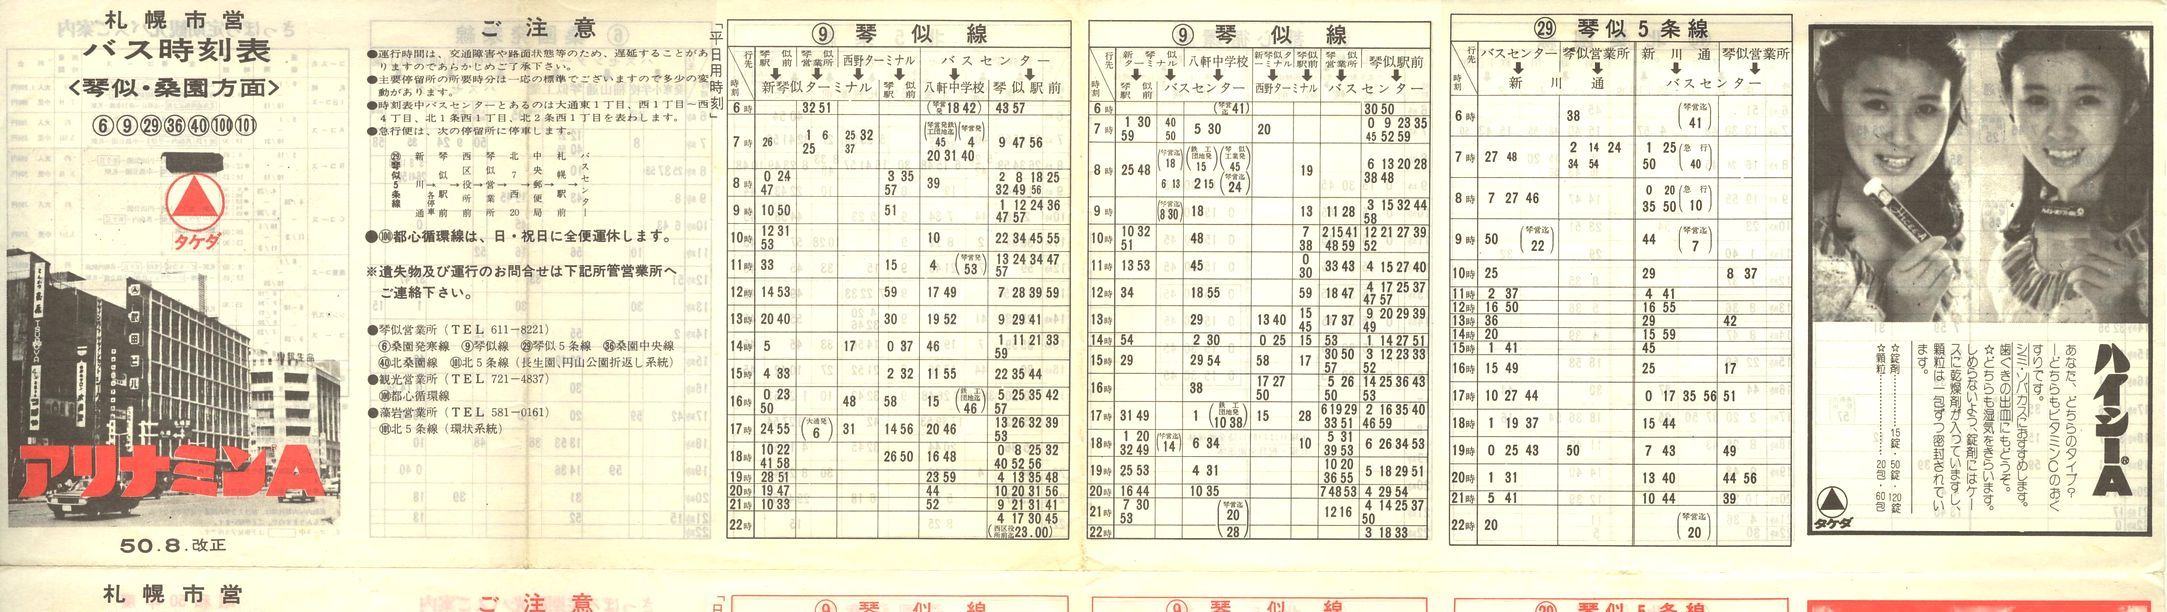 札幌市営
バス時刻表
<琴似・桑園方面>
⑥⑨㉙㊱㊵(100)(101)
タケダ
アリナミンA
50.8.改正
ご注意
●運行時間は、交通障害や路面状態等のため、遅延することがありますのであらかじめご了承下さい。
●主要停留所の所要時分は一応の標準でございますので多少の変動があります。
●時刻表中バスセンターとあるのは大通東1丁目、西1丁目〜西4丁目、北1条西1丁目、北2条西1丁目を表わします。
●急行便は、次の停留所に停車します。
㉙琴似5条線
新川通→各停車→琴似駅前→西区役所前→琴似営業所→北7西20→中央郵便局→札幌駅前→バスセンター
●(100)都心循環線は、日・祝日に全便運休します。
※遺失物及び運行のお問合せは下記所管営業所へ
ご連絡下さい。
●琴似営業所(TEL 611-8221)
⑥桑園発寒線 ⑨琴似線 ㉙琴似5条線 ㊱桑園中央線
㊵北桑園線 (101)北5条線(長生園、円山公園折返し系統)
●観光営業所(TEL 721-4837)
(100)都心循環線
●藻岩営業所(TEL 581-0161)
(101)北5条線(環状系統)
「平日用時刻」
⑨ 琴似線
行先 時刻
琴似駅前 琴似営業所 西野ターミナル バスセンター
新琴似ターミナル 琴似駅前 八軒中学校 琴似駅前
6時 32 51 (18 42) 43 57
7時 26 1 6 25 25 32 37 45 4 20 31 40 9 47 56
8時 0 24 47 3 35 57 39 2 8 18 25 32 49 56
9時 10 50 51 1 12 24 36 47 57
10時 12 31 53 10 22 34 45 55
11時 33 15 4 (53) 13 24 34 47 57
12時 14 53 59 17 49 7 28 39 59
13時 20 40 30 19 52 9 29 41
14時 5 17 0 37 46 1 11 21 33 59
15時 4 33 2 32 11 55 22 35 44
16時 0 23 50 48 58 15 (鉄工団地発 46) 5 25 35 42 57
17時 24 55 (大通発 6) 31 14 56 20 46 13 26 32 39 53
18時 10 22 41 58 26 50 16 48 0 8 25 32 40 52 56
19時 28 51 23 59 4 13 35 48
20時 19 47 44 10 20 31 56
21時 10 33 52 9 21 31 41
22時 4 17 30 45 (西区役所前迄 23.00)
⑨ 琴似線
行先 時刻
新琴似ターミナル 八軒中学校 新琴似ターミナル 琴似駅前 琴似営業所 琴似駅前
琴似駅前 バスセンター 西野ターミナル バスセンター
6時 (琴営迄 41) 30 50
7時 1 30 59 40 50 5 30 20 0 9 23 35 45 52 59
8時 25 48 (琴営迄 18) 6 13 (鉄工団地発 15) 2 15 45 (琴営迄 24) 19 6 13 20 28 38 48
9時 (琴営迄 8 30) 18 13 11 28 3 15 32 44 58
10時 10 32 51 48 7 38 2 15 41 48 59 12 21 27 39 52
11時 13 53 45 0 30 33 43 4 15 27 40
12時 34 18 55 59 18 47 4 17 25 37 47 57
13時 29 13 40 15 45 17 37 9 20 29 39 49
14時 54 2 30 0 25 15 53 1 14 27 51
15時 29 29 54 58 17 30 50 57 3 12 23 33 52
16時 38 17 27 50 5 26 53 14 25 36 43
17時 31 49 1 (鉄工団地発 10 38) 15 28 6 19 29 33 51 2 16 35 40 46 59
18時 1 20 32 49 (琴営迄 14) 6 34 10 5 31 39 53 6 26 34 53
19時 25 53 4 31 10 20 36 55 5 18 29 51
20時 16 44 10 35 7 48 53 4 29 54
21時 7 30 53 (琴営迄 20) 12 16 4 14 25 37 50
22時 (28) 3 18 33
㉙ 琴似5条線
行先 時刻
バスセンター 琴似営業所 新川通 琴似営業所
新川通 バスセンター
6時 38 (琴営迄 41)
7時 27 48 2 14 24 34 54 1 25 50 (急行 40)
8時 7 27 46 0 20 35 50 (急行 10)
9時 50 (琴営迄 22) 44 (琴営迄 7)
10時 25 29 8 37
11時 2 37 4 41
12時 16 50 16 55
13時 36 29 42
14時 20 15 59
15時 1 41 45
16時 15 49 25 17
17時 10 27 44 0 17 35 56 51
18時 1 19 37 15 44
19時 0 25 43 50 7 43 49
20時 1 31 13 40 44 56
21時 5 41 10 44 39
22時 20 (琴営迄 20)
ハイシーA
あなた、どちらのタイプ?
―どちらもビタミンCのおくすりです。
シミ・ソバカスにおすすめします。
歯ぐきの出血にもどうぞ。
☆どちらも湿気をきらいます。
しめらないよう、錠剤にはケースに乾燥剤が入っていますし、顆粒は一包ずつ密封されています。
☆錠剤……15錠・50錠・120錠
☆顆粒……20包・60包
タケダ
札幌市営
ご注意
⑨ 琴似線
⑨ 琴似線
㉙ 琴似5条線